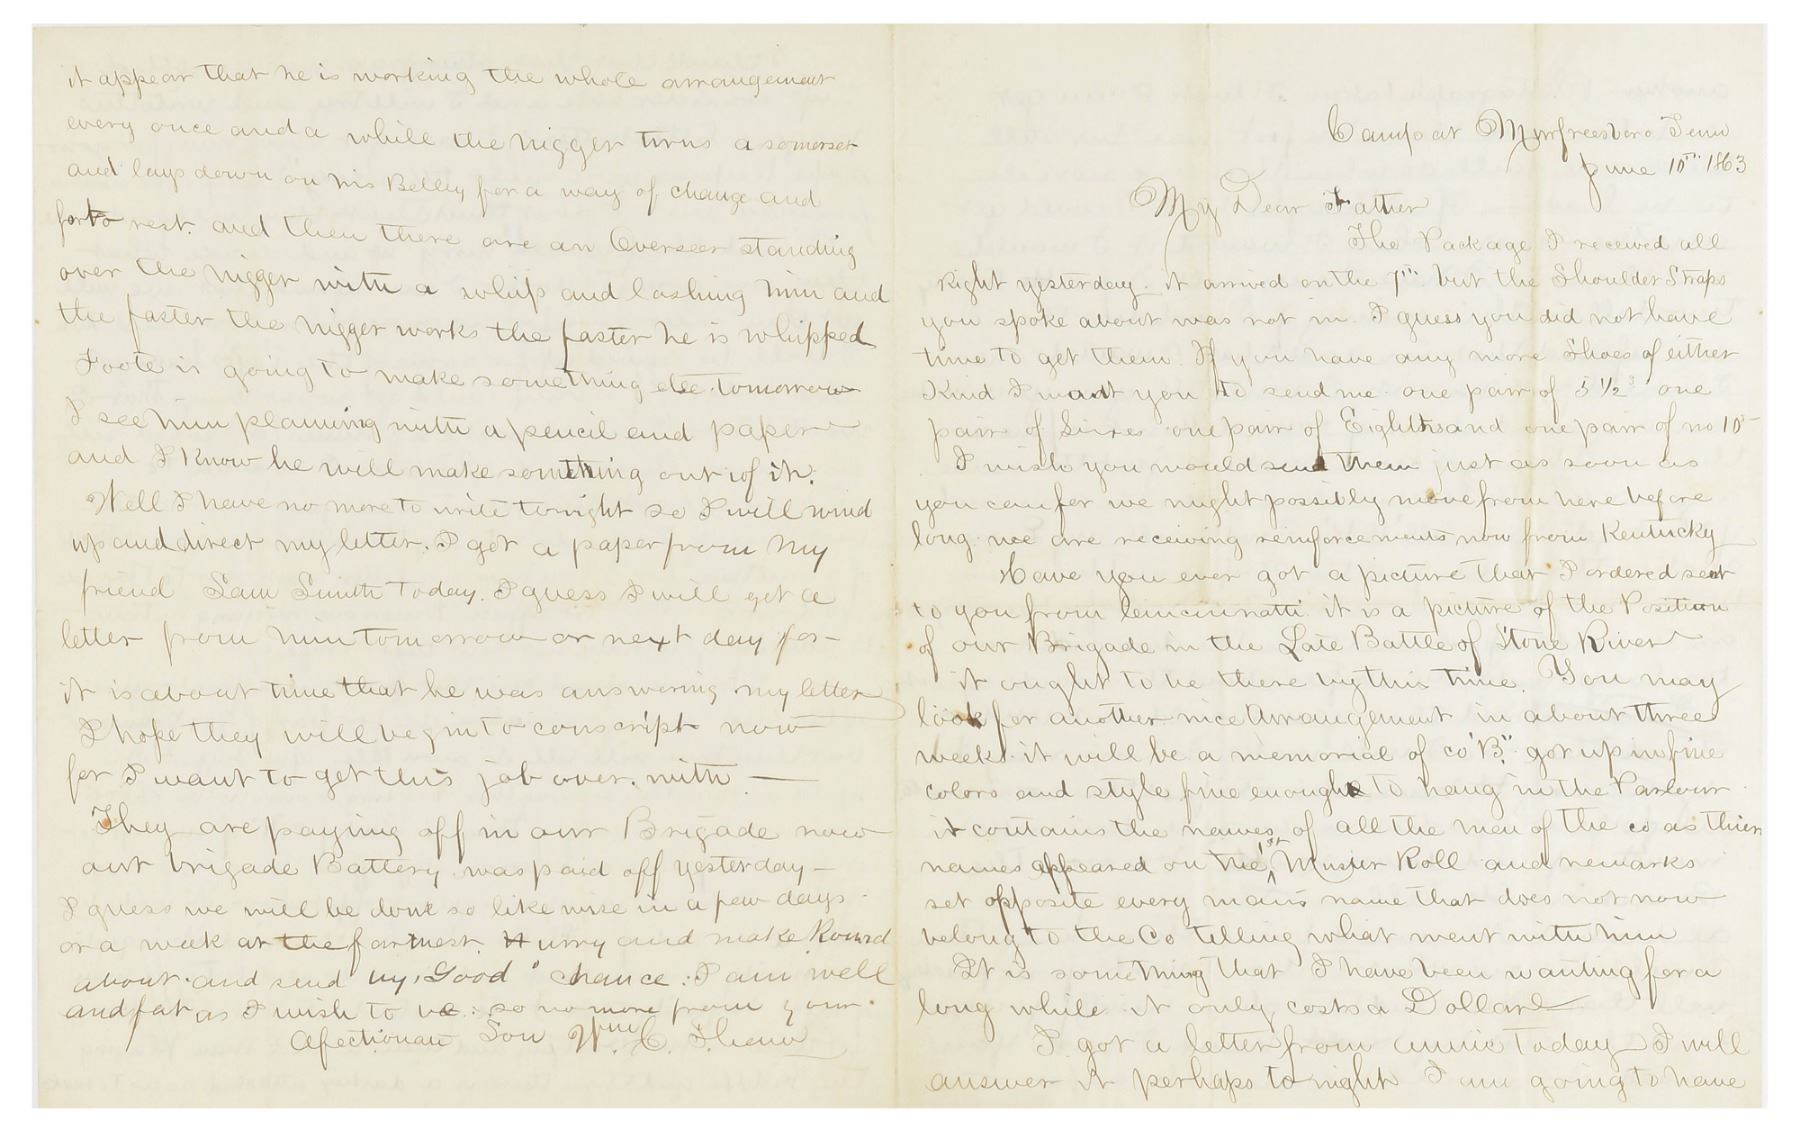 Camp at Murfreesboro Tenn
June 10th 1863
My Dear Father
The Package I received all
right yesterday. it arrived on the 7th but the Shoulder Straps
you spoke about was not in. I guess you did not have
time to get them. If you have any more Shoes of either
Kind I want you to send me one pair of 5 1/2s one
pair of Sixes one pair of Eights and one pair of no 10s
I wish you would send them just as soon as
you can for we might possibly move from here before
long. we are receiving reinforcements now from Kentucky
Have you ever got a picture that I ordered sent
to you from Cincinnatti it is a picture of the Position
of our Brigade in the Late Battle of Stone River
it ought to be there by this time. You may
look for another nice Arrangement in about three
weeks. it will be a memorial of co "B." got up in fine
colors and style fine enough to hang in the Parlour
it contains the names of all the men of the co as thier
names appeared on the 1st Muster Roll and remarks
set opposite every man's name that does not now
belong to the Co telling what went with him
It is something that I have been wanting for a
long while it only costs a Dollar
I got a letter from Annie Today I will
answer it perhaps to night I am going to have
it appear that he is working the whole arrangement
every once and a while the nigger turns a somerset
and lays down on his Belley for a way of change and
for to rest. and then there are an Overseer standing
over the nigger with a whip and lashing him and
the faster the nigger works the faster he is whipped
Foote is going to make something else tomorrow
I see him planning with a pencil and paper
and I Know he will make something out of it.
Well I have no more to write tonight so I will wind
up and direct my letter. I got a paper from my
friend Sam Smith Today. I guess I will get a
letter from him tomorrow or next day for
it is about time that he was answering my letter
I hope they will begin to conscript now
for I want to get this job over with —
They are paying off in our Brigade now
our brigade Battery was paid off yesterday –
I guess we will be done so likewise in a few days
or a week at the farthest. Hurry and make Round
about and send by "Good" chance. I am well
and fat as I wish to be. so no more from your
Afectionate Son Wm C.